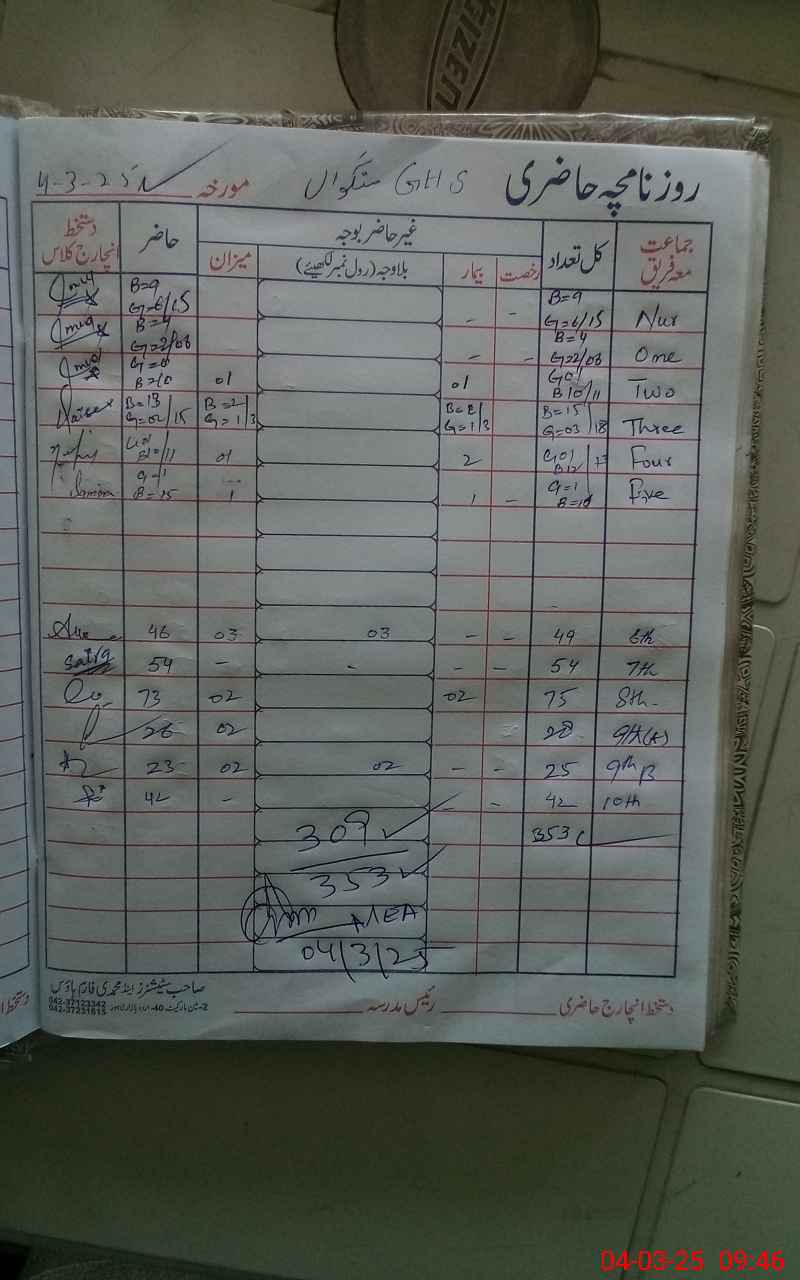 CITIZEN
روزنامچہ حاضری GHS منگواں مورخہ 4-3-25
جماعت معہ فریق کل تعداد غیر حاضر بوجہ حاضر دستخط انچارج کلاس
رخصت بیمار بلاوجہ (رول نمبر لکھیئے) میزان
Nur B=9 G=6/15 - - B=9 G=6/15
One B=4 G=2/06 - - B=4 G=2/06
Two G01 B10/11 01 01 G=01 B=10
Three B=15 G=03/18 B=2 G=1/3 B=2 G=1/3 B=13 G=02/15
Four G01 B12/13 2 01 G01 B10/11
Five G=1 - 1 1 G=1 B=15
6th 49 - - 03 03 46
7th 54 - - - - 54 Saira
8th 75 02 02 73
9th(A) 28 02 26
9th B 25 - - 02 02 23
10th 42 - - - 42
353
309
353
MEA
04/3/25
دستخط انچارج حاضری رئیس مدرسہ
صاحب سٹیشنرز اینڈ محمدی فارم ہاؤس
042-37123342
042-37231615
دستخط
04-03-25 09:46